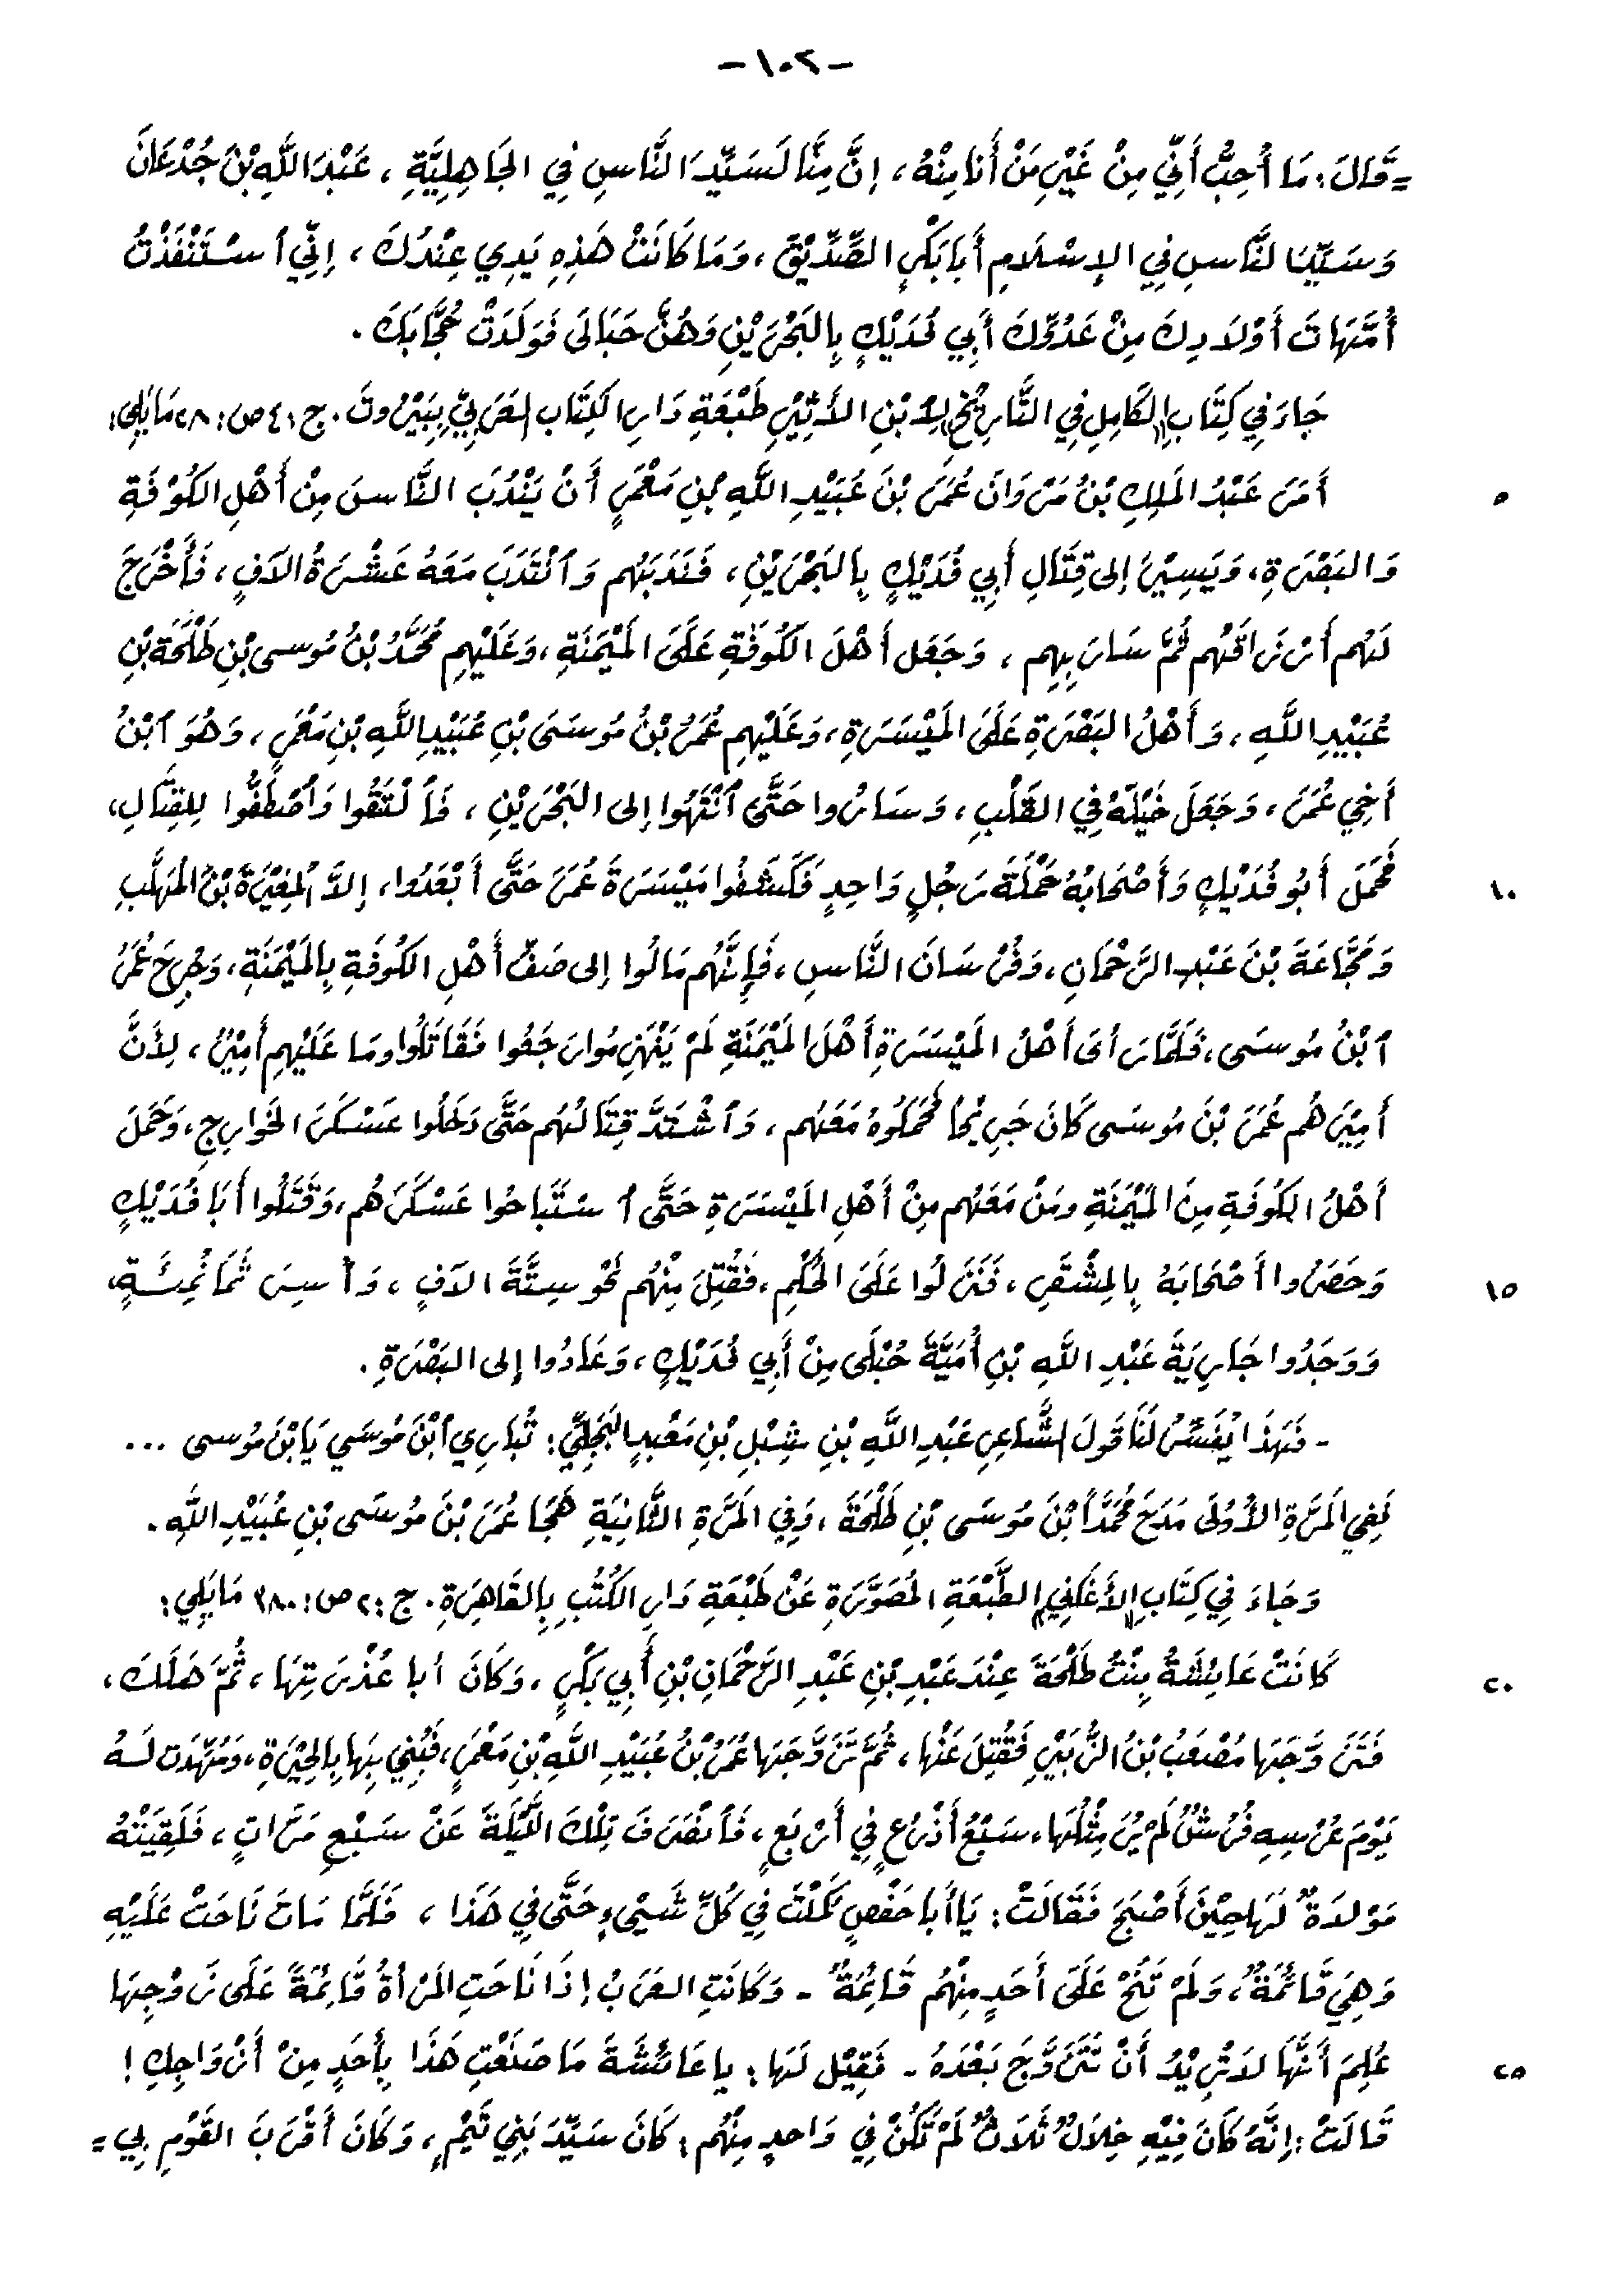 -١٠٢-
=قَالَ: مَا أُحِبُّ أَنِّي مِنْ غَيْرِ مَنْ أَنَا مِنْهُ، إِنَّ مِنَّا لَسَيِّدَ النَّاسِ فِي الجَاهِلِيَّةِ، عَبْدَ اللَّهِ بْنَ جُدْعَانَ
وَسَيِّدَ النَّاسِ فِي الإِسْلَامِ أَبَا بَكْرٍ الصِّدِّيْقَ، وَمَا كَانَتْ هَذِهِ يَدِي عِنْدَكَ، إِنِّي ٱسْتَنْقَذْتُ
أُمَّهَاتَ أَوْلَادِكَ مِنْ عَدُوِّكَ أَبِي فُدَيْكٍ بِالبَحْرَيْنِ وَهُنَّ حَبَالَى فَوَلَدَتْ حُجَّابَكَ.
جَاءَ فِي كِتَابِ "الكَامِلِ فِي التَّارِيْخِ" لِابْنِ الأَثِيْرِ طَبْعَةِ دَارِ الكِتَابِ العَرَبِيِّ بِبَيْرُوتَ. ج: ٤ ص: ٢٨ مَا يَلِي:
أَمَرَ عَبْدُ المَلِكِ بْنُ مَرْوَانَ عُمَرَ بْنَ عُبَيْدِ اللَّهِ بْنِ مَعْمَرٍ أَنْ يَنْدُبَ النَّاسَ مِنْ أَهْلِ الكُوْفَةِ
٥
وَالبَصْرَةِ، وَيَسِيْرَ إلى قِتَالِ أَبِي فُدَيْكٍ بِالبَحْرَيْنِ، فَنَدَبَهُم وَٱنْتَدَبَ مَعَهُ عَشْرَةُ الآفٍ، فَأَخْرَجَ
لَهُم أَرْزَاقَهُم ثُمَّ سَارَ بِهِم، وَجَعَلَ أَهْلَ الكُوفَةِ عَلَى المَيْمَنَةِ، وَعَلَيْهِم مُحَمَّدُ بْنُ مُوسى بْنِ طَلْحَةَ بْنِ
عُبَيْدِ اللَّهِ، وَأَهْلُ البَصْرَةِ عَلَى المَيْسَرَةِ، وَعَلَيْهِم عُمَرُ بْنُ مُوسَى بْنِ عُبَيْدِ اللَّهِ بْنِ مَعْمَرٍ، وَهُوَ ٱبْنُ
أَخِي عُمَرَ، وَجَعَلَ خَيْلَهُ فِي القَلْبِ، وَسَارُوا حَتَّى ٱنْتَهَوا إلى البَحْرَيْنِ، فَٱلْتَقُوا وَٱصْطَفُّوا لِلقِتَالِ،
فَحَمَلَ أَبُو فُدَيْكٍ وَأَصْحَابُهُ حَمْلَةَ رَجُلٍ وَاحِدٍ فَكَشَفُوا مَيْسَرَةَ عُمَرَ حَتَّى أَبْعَدُوا، إلاَّ المُغِيْرَةَ بْنَ المُهَلَّبِ
١٠
وَمُجَّاعَةَ بْنَ عَبْدِ الرَّحْمَانِ، وَفُرْسَانَ النَّاسِ، فَإِنَّهُم مَالُوا إلى صَفِّ أَهْلِ الكُوفَةِ بِالمَيْمَنَةِ، وَجُرِحَ عُمَرُ
ٱبْنُ مُوسَى، فَلَمَّا رَأى أَهْلُ المَيْسَرَةِ أَهْلَ المَيْمَنَةِ لَمْ يَنْهَزِمُوا رَجَعُوا فَقَاتَلُوا وَمَا عَلَيْهِم أَمِيْرٌ، لِأَنَّ
أَمِيْرَهُم عُمَرَ بْنَ مُوسَى كَانَ جَرِيْحَاً فَحَمَلُوهُ مَعَهُم، وَٱشْتَدَّ قِتَالُهُم حَتَّى دَخَلُوا عَسْكَرَ الخَوَارِجِ، وَحَمَلَ
أَهْلُ الكُوفَةِ مِنَ المَيْمَنَةِ وَمَنْ مَعَهُم مِنْ أَهْلِ المَيْسَرَةِ حَتَّى ٱسْتَبَاحُوا عَسْكَرَهُم، وَقَتَلُوا أَبَا فُدَيْكٍ
وَحَصَرُوا أَصْحَابَهُ بِالمُشَقَّرِ، فَنَزَلُوا عَلَى الحُكْمِ، فَقُتِلَ مِنْهُم نَحْوُ سِتَّةَ الآفٍ، وَأُسِرَ ثَمَانُمِئَةٍ،
١٥
وَوَجَدُوا جَارِيَةَ عَبْدِ اللَّهِ بْنِ أُمَيَّةَ حُبْلَى مِنْ أَبِي فُدَيْكٍ، وَعَادُوا إلى البَصْرَةِ.
- فَهَذَا يُفَسِّرُ لَنَا قَولَ الشَّاعِرِ عَبْدِ اللَّهِ بْنِ شِبْلِ بْنِ مَعْبَدٍ البَجَلِيِّ: تُبَارِي ٱبْنَ مُوسَى يَا بْنَ مُوسى ...
فَفِي المَرَّةِ الأُولَى مَدَحَ مُحَمَّدَاً بْنَ مُوسَى بْنِ طَلْحَةَ، وَفِي المَرَّةِ الثَّانِيَةِ هَجَا عُمَرَ بْنَ مُوسَى بْنِ عُبَيْدِ اللَّهِ.
وَجَاءَ فِي كِتَابِ "الأَغَانِي" الطَّبْعَةِ المُصَوَّرَةِ عَنْ طَبْعَةِ دَارِ الكُتُبِ بِالقَاهِرَةِ. ج: ٢ ص: ١٨٠ مَا يَلِي:
كَانَتْ عَائِشَةُ بِنْتُ طَلْحَةَ عِنْدَ عَبْدِ بْنِ عَبْدِ الرَّحْمَانِ بْنِ أَبِي بَكْرٍ، وَكَانَ أبا عُذْرَتِهَا، ثُمَّ هَلَكَ،
٢٠
فَتَزَوَّجَهَا مُصْعَبُ بْنُ الزُّبَيْرِ فَقُتِلَ عَنْهَا، ثُمَّ تَزَوَّجَهَا عُمَرُ بْنُ عُبَيْدِ اللَّهِ بْنِ مَعْمَرٍ، فَبُنِيَ بِهَا بِالحِيْرَةِ، وَمُهِّدَت لَهُ
يَوْمَ عُرْسِهِ فُرُشٌ لَمْ يُرَ مِثْلُهَا، سَبْعُ أَذْرُعٍ فِي أَرْبَعٍ، فَٱنْصَرَفَ تِلْكَ اللَّيْلَةَ عَنْ سَبْعِ مَرَّاتٍ، فَلَقِيَتْهُ
مَوْلدَةٌ لَهَا حِيْنَ أَصْبَحَ فَقَالَتْ: يَا أَبَا حَفْصٍ كَمُلْتَ فِي كُلِّ شَيْىءٍ حَتَّى فِي هَذَا، فَلَمَّا مَاتَ نَاحَتْ عَلَيْهِ
وَهِيَ قَائِمَةٌ، وَلَمْ تَنُحْ عَلَى أَحَدٍ مِنْهُم قَائِمَةً - وَكَانَتِ العَرَبُ إذَا نَاحَتِ المَرْأةُ قَائِمَةً عَلَى زَوْجِهَا
عُلِمَ أَنَّهَا لاَ تُرِيْدُ أَنْ تَتَزَوَّجَ بَعْدَهُ - فَقِيْل لَهَا: يا عَائِشَةَ مَا صَنَعْتِ هَذَا بِأَحَدٍ مِنْ أَزْوَاجِكِ!
٢٥
قَالَتْ: إنَّهُ كَانَ فِيْهِ خِلاَلٌ ثَلاَثٌ لَمْ تَكُنْ فِي وَاحدٍ مِنْهُم: كَانَ سَيِّدَ بَنِي تَيْمٍ، وَكَانَ أَقْرَبَ القَوْمِ بِي =